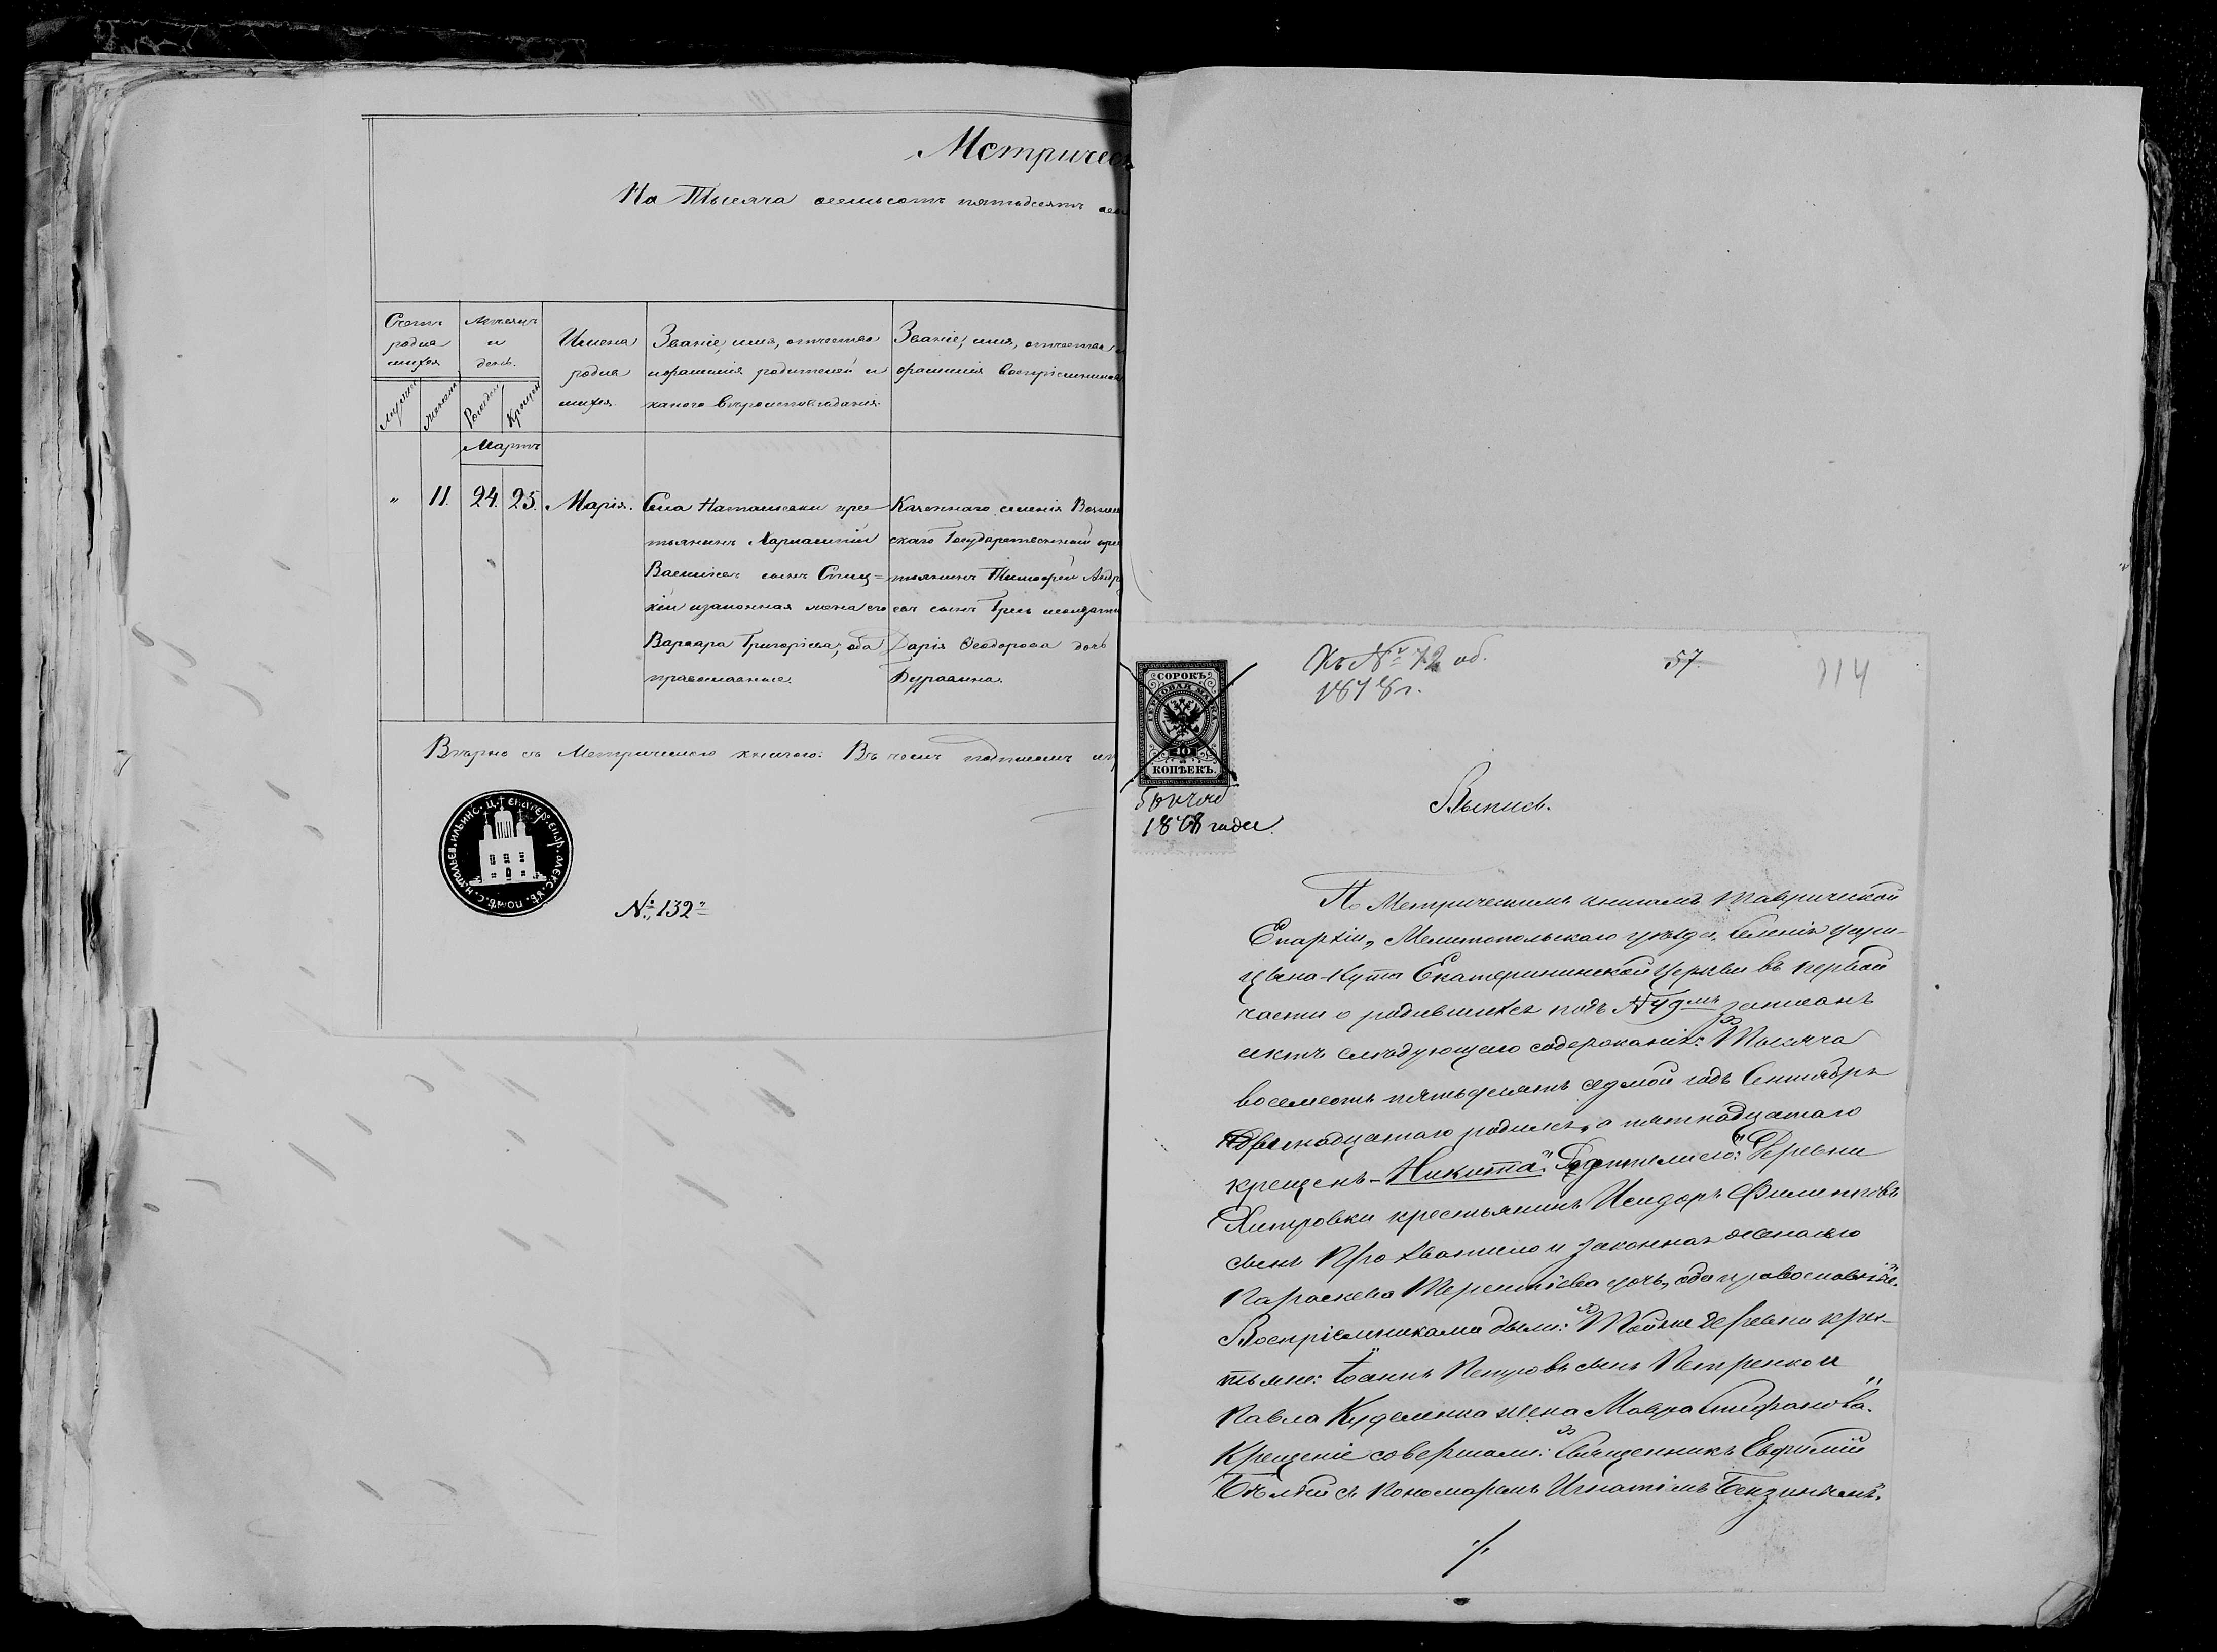 Метричес
На Тысяча осемьсотъ пятьдесятъ
Счетъ родившихся
Мѣсяцъ и день.
Имена родившихся.
Званіе, имя, отчество и фамилія родителей и какого вѣроисповѣданія.
Званіе, имя, отчество и фамилія воспріемников
Мартъ
" 11. 24. 25. Марія.
Села Натальевки крестьянинъ
Васильевъ сынъ
законная жена его
Варвара Григорьева, оба
православные.
Казеннаго селенія
скаго Государственный кре
тьянинъ Тимофей Андр
евъ сынъ
Дарія Ѳеодорова дочь
Вѣрно съ Метрическою книгою: Въ чемъ подписомъ
№ 132
СОРОКЪ
ГЕРБОВАЯ МАРКА
40
КОПѢЕКЪ.
1878 года.
Къ № 72 об.
1878 г.
57.
314
Выпись.
По Метрическимъ книгамъ Таврической
Епархіи, Мелитопольскаго уѣзда, селенія Цари-
цына-Кута Екатерининской Церкви въ первой
части о родившихся подъ № 49мъ записанъ
актъ слѣдующаго содержанія: Тысяча
восемсотъ пятьдесятъ седмой годъ Сентября
двенадцатаго родился, а пятнадцатаго
крещенъ – Никита". Родители его: Деревни
крестьянинъ Исидоръ Филиповъ
сынъ и законная жена его
Параскева Терентіева дочь, оба православніе.
Воспріемниками были: Тойже деревни крес-
тьяне: Іоаннъ Петровъ сынъ Петренко и
Павла Куделенка жена Мавра Стефанова.
Крещеніе совершали: Священникъ Евфимій
Бѣлый съ Пономаремъ Игнатіемъ
./.